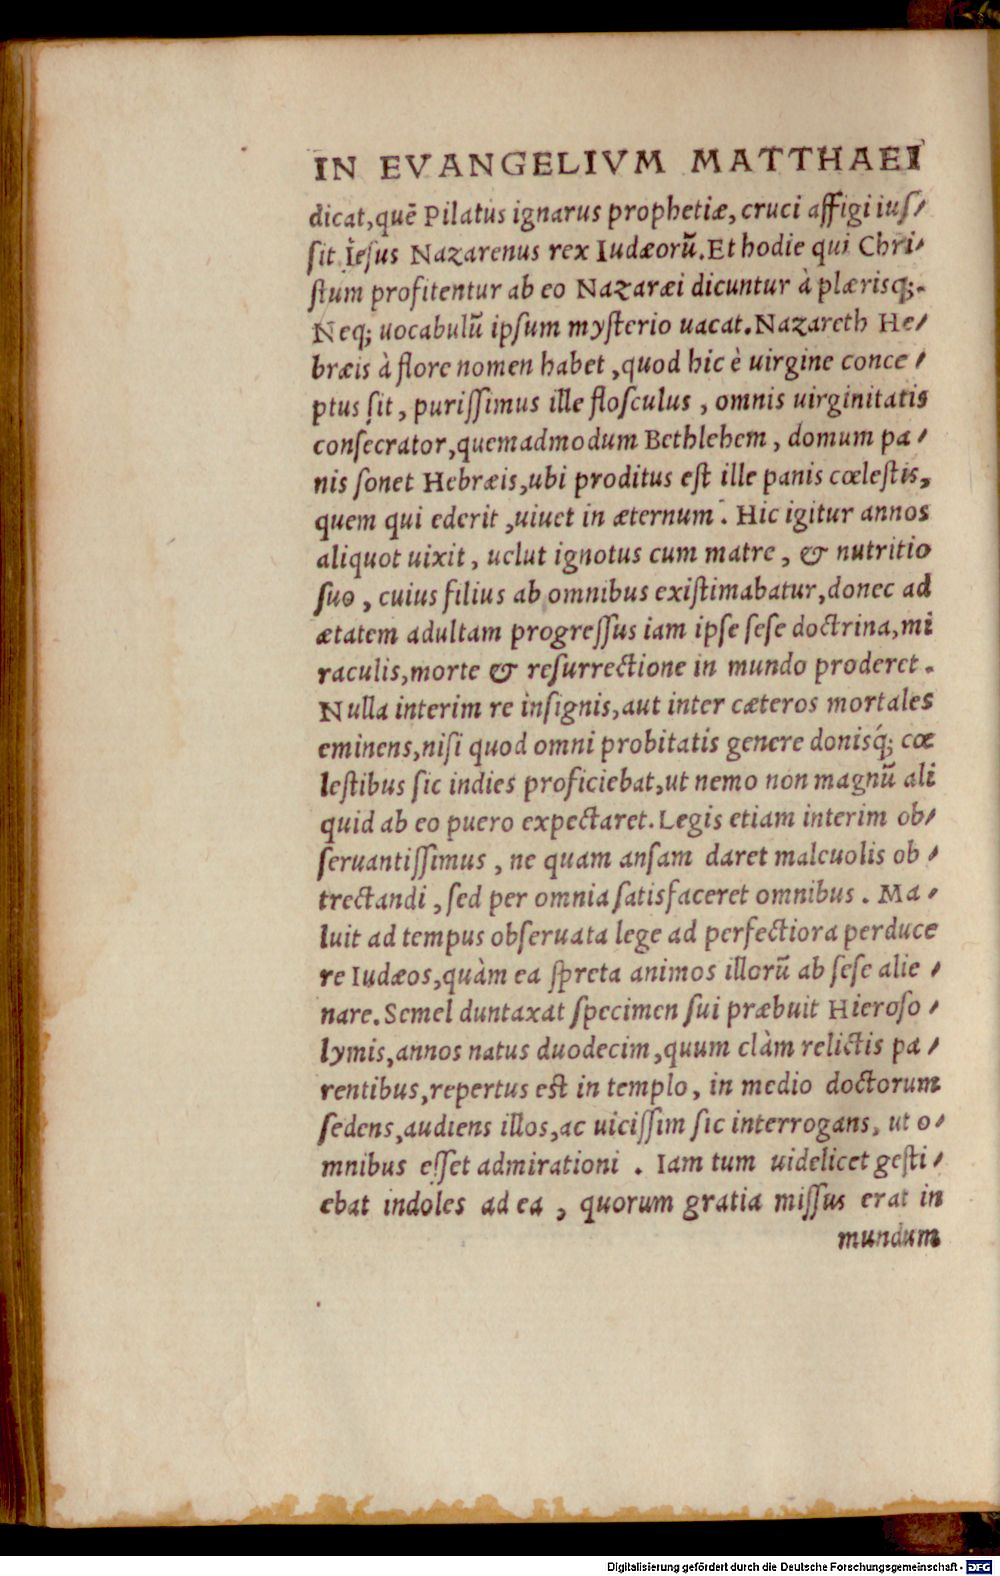 IN EVANGELIVM MATTHAEI
dicat,quē Pilatus ignarus prophetiæ, cruci affigi iuſ⸗
ſit Ieſus Nazarenus rex Iudæorū. Et hodie qui Chri⸗
ſtum profitentur ab eo Nazaræi dicuntur à plæriſq;.
Neq; uocabulū ipſum myſterio uacat. Nazareth He⸗
bræis à flore nomen habet ,quod hic è uirgine conce⸗
ptus ſit, puriſſimus ille floſculus , omnis uirginitatis
conſecrator,quemadmodum Bethlehem, domum pa⸗
nis ſonet Hebræis,ubi proditus eſt ille panis cœleſtis,
quem qui ederit ,uiuet in æternum . Hic igitur annos
aliquot uixit, uelut ignotus cum matre, & nutritio
ſuo , cuius filius ab omnibus exiſtimabatur,donec ad
ætatem adultam progreſſus iam ipſe ſeſe doctrina,mi
raculis,morte & reſurrectione in mundo proderet .
Nulla interim re inſignis,aut inter cæteros mortales
eminens,niſi quod omni probitatis genere doniſq́; cœ
leſtibus ſic indies proficiebat,ut nemo non magnū ali
quid ab eo puero expectaret. Legis etiam interim ob⸗
ſeruantiſſimus , ne quam anſam daret maleuolis ob⸗
trectandi , ſed per omnia ſatisfaceret omnibus . Ma⸗
luit ad tempus obſeruata lege ad perfectiora perduce
re Iudæos,quàm ea ſpreta animos illorū ab ſeſe alie⸗
nare. Semel duntaxat ſpecimen ſui præbuit Hieroſo⸗
lymis,annos natus duodecim,quum clàm relictis pa⸗
rentibus,repertus eſt in templo, in medio doctorum
ſedens,audiens illos,ac uiciſſim ſic interrogans, ut o⸗
mnibus eſſet admirationi . Iam tum uidelicet geſti⸗
ebat indoles ad ea , quorum gratia miſſus erat in
mundum
Digitalisierung gefördert durch die Deutsche Forschungsgemeinschaft - DFG